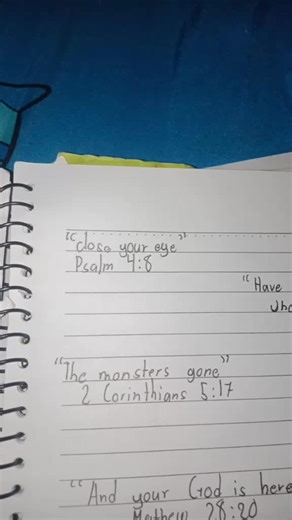 "close your eye"
Psalm 4:8
"Have
"The monsters gone"
2 Corinthians 5:17
"And your God is here
Matthew 28:20